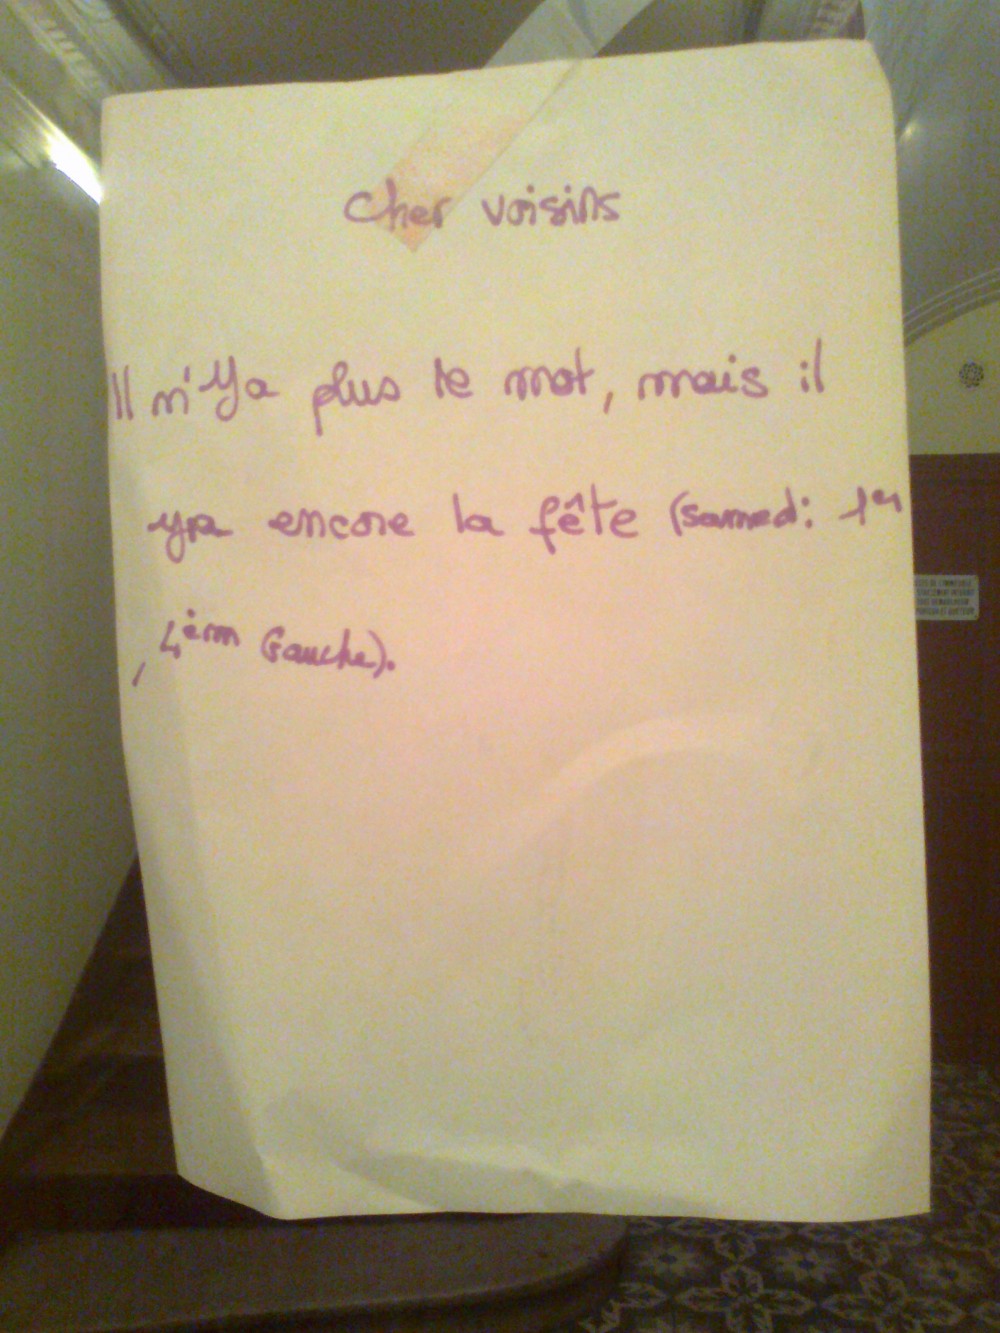 Cher voisins
Il n'Ya plus le mot, mais il
ya encore la fête (samedi 1er
, 4èm Gauche).